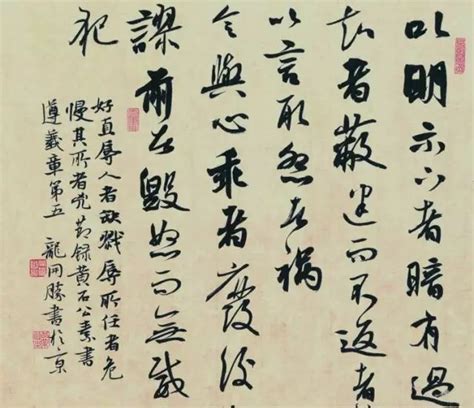 以明示下者暗有過
知者蔽迷而不返者
以言取怨者禍
令與心乖者廢後
謬前者毀怒而無威
犯
好直辱人者殃戮辱所任者危
慢其所者兇節録黄石公素書
遵義章第五 龍開勝書於京